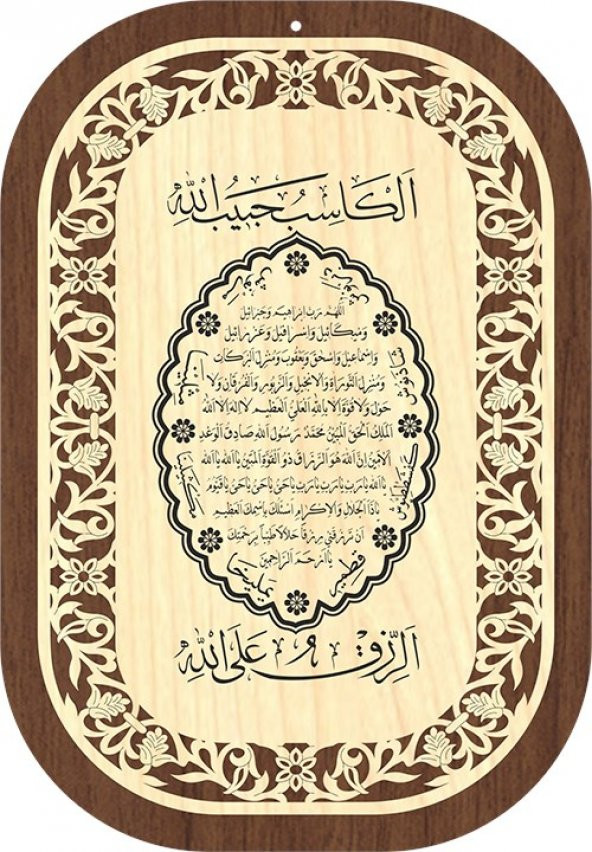 اَلْكَاسِبُ حَبِيبُ اللهِ
اللهم رب ابراهيم وجبرائيل
وميكائيل واسرافيل وعزرائيل
واسماعيل واسحق ويعقوب ومنزل البركات
ومنزل التوراة والانجيل والزبور والفرقان ولا
حول ولا قوة الا بالله العلي العظيم لا اله الا الله
الملك الحق المبين محمد رسول الله صادق الوعد
الامين ان الله هو الرزاق ذو القوة المتين ياالله ياالله
ياالله يارب يارب يارب ياحي ياحي ياحي ياقيوم
ياذا الجلال والاكرام اسئلك باسمك العظيم
ان ترزقني رزقا حلالا طيبا برحمتك
ياارحم الراحمين
شاذنوش
قطمير
يمليخا
اَلرِّزْقُ عَلَى اللهِ